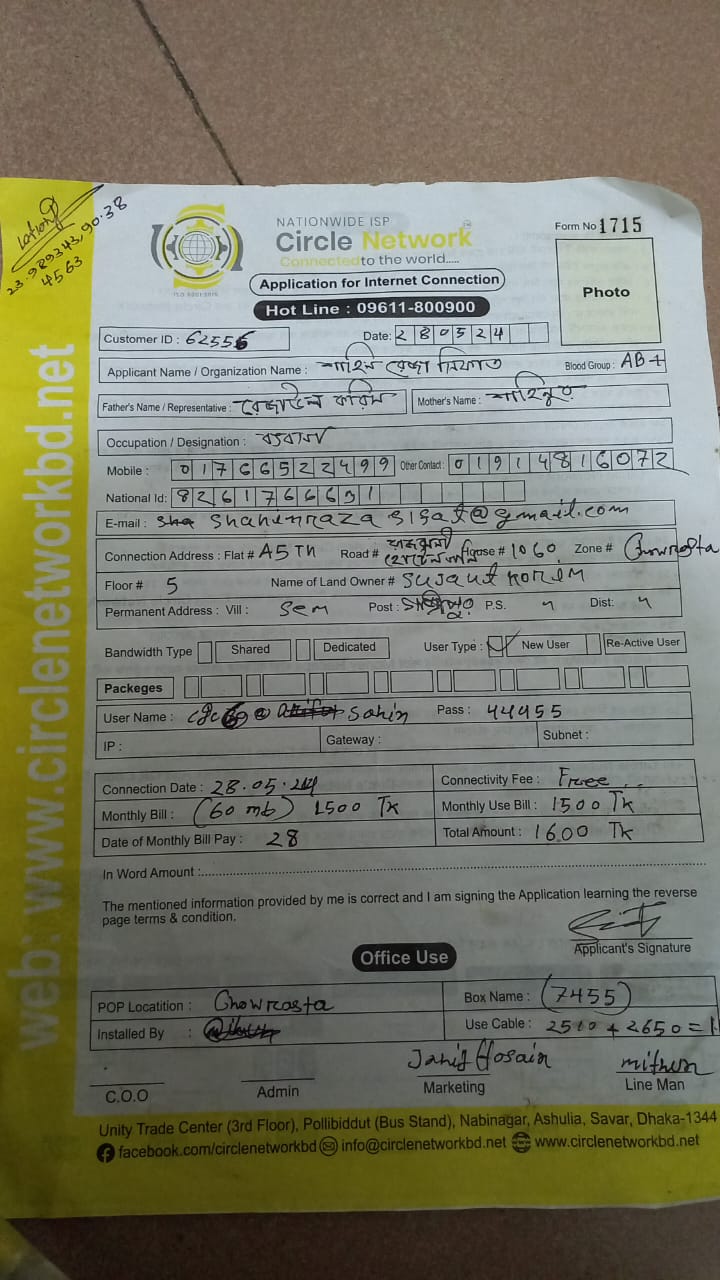 23.989343,90.38
4563
NATIONWIDE ISP
Circle Network
Connected to the world.....
ISO 9001:2015
Application for Internet Connection
Hot Line : 09611-800900
Form No 1715
Photo
Customer ID : 62556
Date: 280524
Applicant Name / Organization Name : শাহিন রেজা সিফাত Blood Group : AB+
Father's Name / Representative : রেজাউল করিম Mother's Name : শাহিনুর
Occupation / Designation :
Mobile : 01766522499 Other Contact : 01914816072
National Id: 8261766631
E-mail : shahinraza sifat@gmail.com
Connection Address : Flat # A5Th Road # House # 1060 Zone # Chowrasta
Floor # 5 Name of Land Owner # Sujaut Korim
Permanent Address : Vill : Sem Post : P.S. " Dist: "
Bandwidth Type Shared Dedicated User Type : New User Re-Active User
Packeges
User Name : Sahin Pass : 44455
IP : Gateway : Subnet :
Connection Date : 28.05.24 Connectivity Fee : Free
Monthly Bill : (60 mb) 1500 Tk Monthly Use Bill : 1500 Tk
Date of Monthly Bill Pay : 28 Total Amount : 1600 Tk
In Word Amount :
The mentioned information provided by me is correct and I am signing the Application learning the reverse
page terms & condition.
Applicant's Signature
Office Use
POP Locatition : Chowrasta Box Name : (7455)
Installed By : Use Cable : 2510 + 2650 =
Jahid Hosain mithun
C.O.O Admin Marketing Line Man
Unity Trade Center (3rd Floor), Pollibiddut (Bus Stand), Nabinagar, Ashulia, Savar, Dhaka-1344
facebook.com/circlenetworkbd info@circlenetworkbd.net www.circlenetworkbd.net
web: www.circlenetworkbd.net